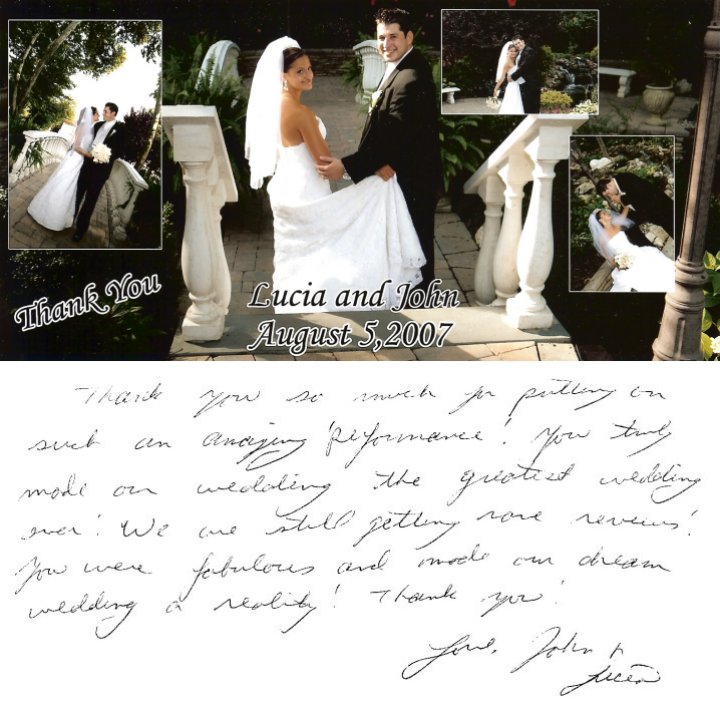 Thank You
Lucia and John
August 5,2007
Thank you so much for putting on
such an amazing performance! You truly
made our wedding the greatest wedding
ever! We are still getting rave reviews!
You were fabulous and made our dream
wedding a reality! Thank you!
Love, John +
Lucia